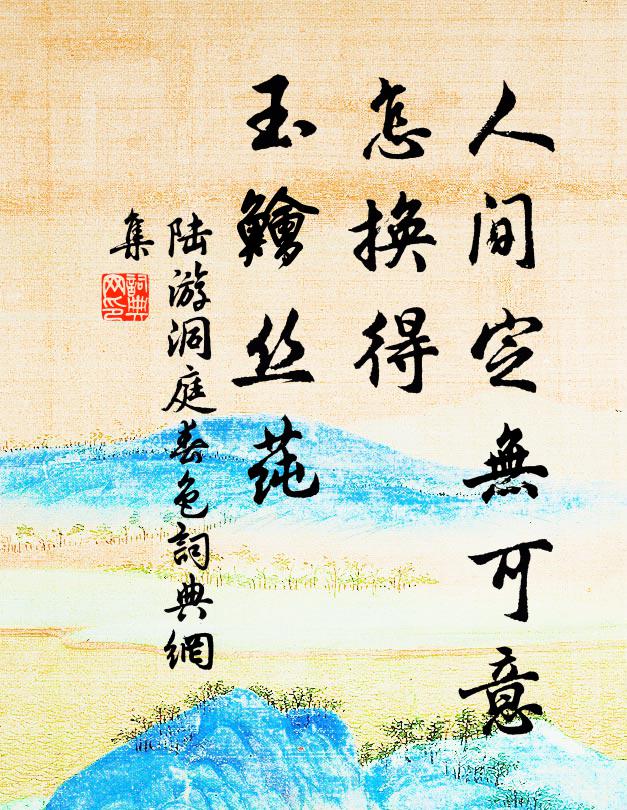 人間定無可意
怎換得
玉鱠丝莼
陆游洞庭春色詞典網
集
詞典网印